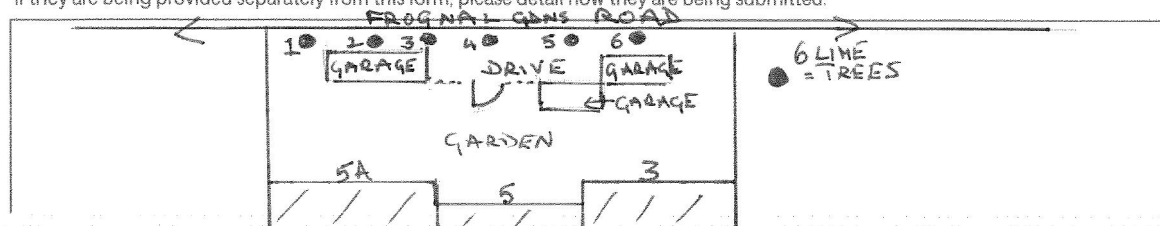 If they are being provided separately from this form, please detail how they are being submitted.
FROGNAL GDNS ROAD
1 2 3 4 5 6
6 LIME
= TREES
GARAGE DRIVE GARAGE
GARAGE
GARDEN
5A 5 3